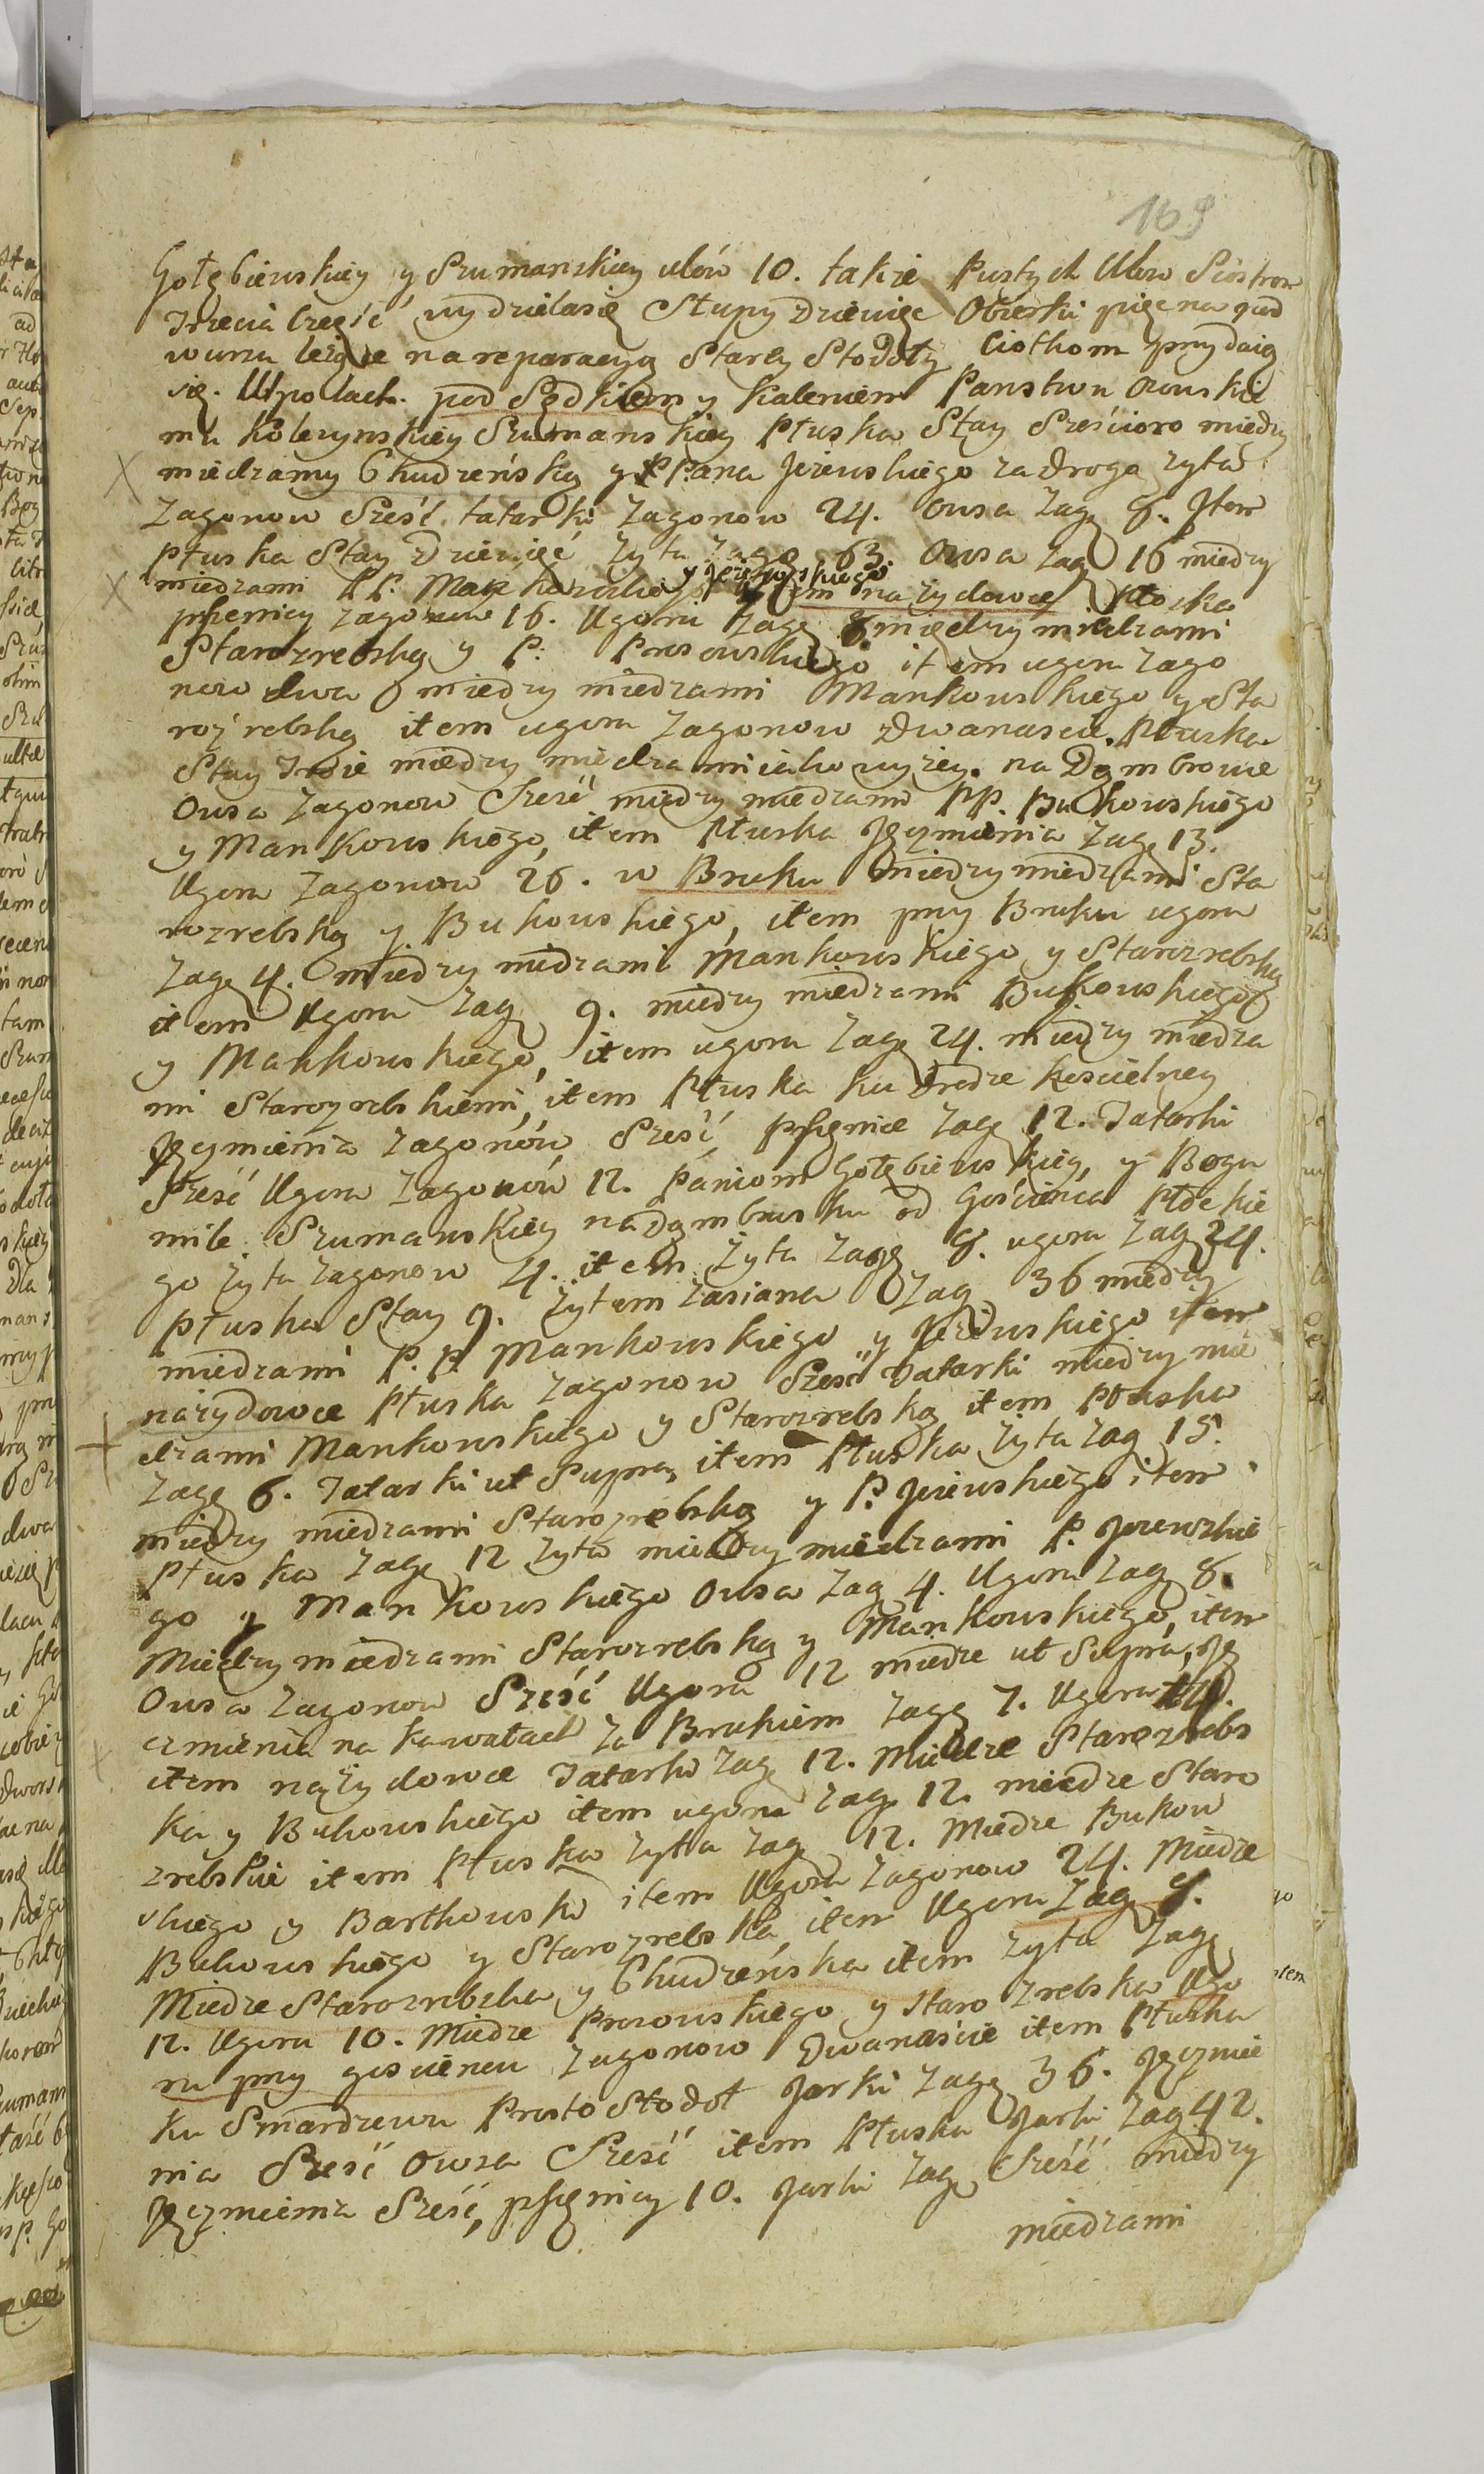 169
Gołębiewskiey y Szumanskiey ulów 10. takze Pustych Ulow Siostrom
Trzecia Część wydzielasię Słupy Dziewięc Obierki pięc na pod
worzu leżące na reparacyą Starey Stodoły Ciotkom przydaią
się. W polach. pod Sędkiem y Kaleniem Panstwu Orouskie
mu Koleczynskiey Szumanskiey Płuska Stay Sześcioro miedzy
miedzamy Chudzeńską y P. Pana Jeżewskiego za droga zyta
Zagonow Sześć tatarki Zagonow 24. Owsa Zag. 8. Item
płuska Stay Dziewięć żyta Zago 63. Owsa Zag 16 miedzy
miedzami PP. Mankowskiego y Jeżewskiego item na żydowce Płoska
pszenicy Zagonow 16. Ugoru Zag. 8 między miedzami
Starozrebską y P: Prosowskiego item ugoru Zago
now dwa miedzy miedzami Mankowskiego y Sta
roźrebską item ugoru Zagonow Dwanascie. Płuska
Stay Troie miedzy miedzami iako wyżey. na Dąmbrowie
Owsa Zagonow Sześć miedzy miedzami PP. Bukowskiego
y Mankowskiego, item Płuska Jęczmienia Zag. 13.
Ugoru Zagonow 26. w Bruku miedzy miedzami Sta
rozrebską y Bukowskiego, item przy Bruku ugoru
Zag. 4. miedzy miedzami Mankowskiego y Starozrebską
item Ugoru Zag. 9. miedzy miedzami Bukowskiego
y Mankowskiego, item ugoru Zag. 24. miedzy miedza
mi Starozrebskiemi, item Płuska ku Drodze Koscielney
Jęczmienia Zagonów Sześć, Pszenice Zag. 12. Tatarki
Sześć Ugoru Zagonów 12. Paniom Gołębiewskiey, y Bogu
mile Szumanskiey na Dąmbrusku od Gościńca Płockie
go żyta Zagonow 4. item żyta Zag. 8. ugoru Zag. 24.
Płuska Stay 9. żytem zasiana Zag. 36 miedzy
miedzami P.P. Mankowskiego y Jeżewskiego item
na żydowce Płuska Zagonow Sześć Tatarki miedzy mie
dzami Mankowskiego y Starozrebską item Płuska
Zag. 6. Tatarki ut Supra, item Płuska żyta Zag 15.
miedzy miedzami Starozrebską y P. Jeżewskiego item
Płuska Zag. 12 żyta miedzy miedzami P. Jezewskie
go y Mankowskiego Owsa Zag. 4. Ugoru Zag. 8.
Miedzy miedzami Starozrebską y Mankowskiego, item
Owsa Zagonow Sześć Ugoru 12 miedze ut Supra, Ję
czmienia na kawałach za Brukiem Zag. 7. Ugoru 14.
item na Żydowce Tatarki Zag. 12. Miedze Starozrebs
ka y Bukowskiego item ugoru Zag. 12. miedze Staro
zrebskie item Płuska żyta Zag. 12. Miedze Bukow
skiego y Bartkowska item Ugoru Zagonow 24. Miedze
Bukowskiego y Starozrebska, item Ugoru Zag. 8.
Miedze Starozrebska y Chudzeńska item zyta Zag.
12. Ugoru 10. Miedze Prosowskiego y Starozrebska Ugo
ru przy goscincu Zagonow Dwanaście item Płuska
ku Smardzewu Prosto Stodoł Jarki Zag. 36. Jęczmie
nia Sześć Owsa Sześć item Płuska Jarki Zag 42.
Jęczmienia Sześć, pszęnicy 10. Jarki Zag. Sześć miedzy
miedzami